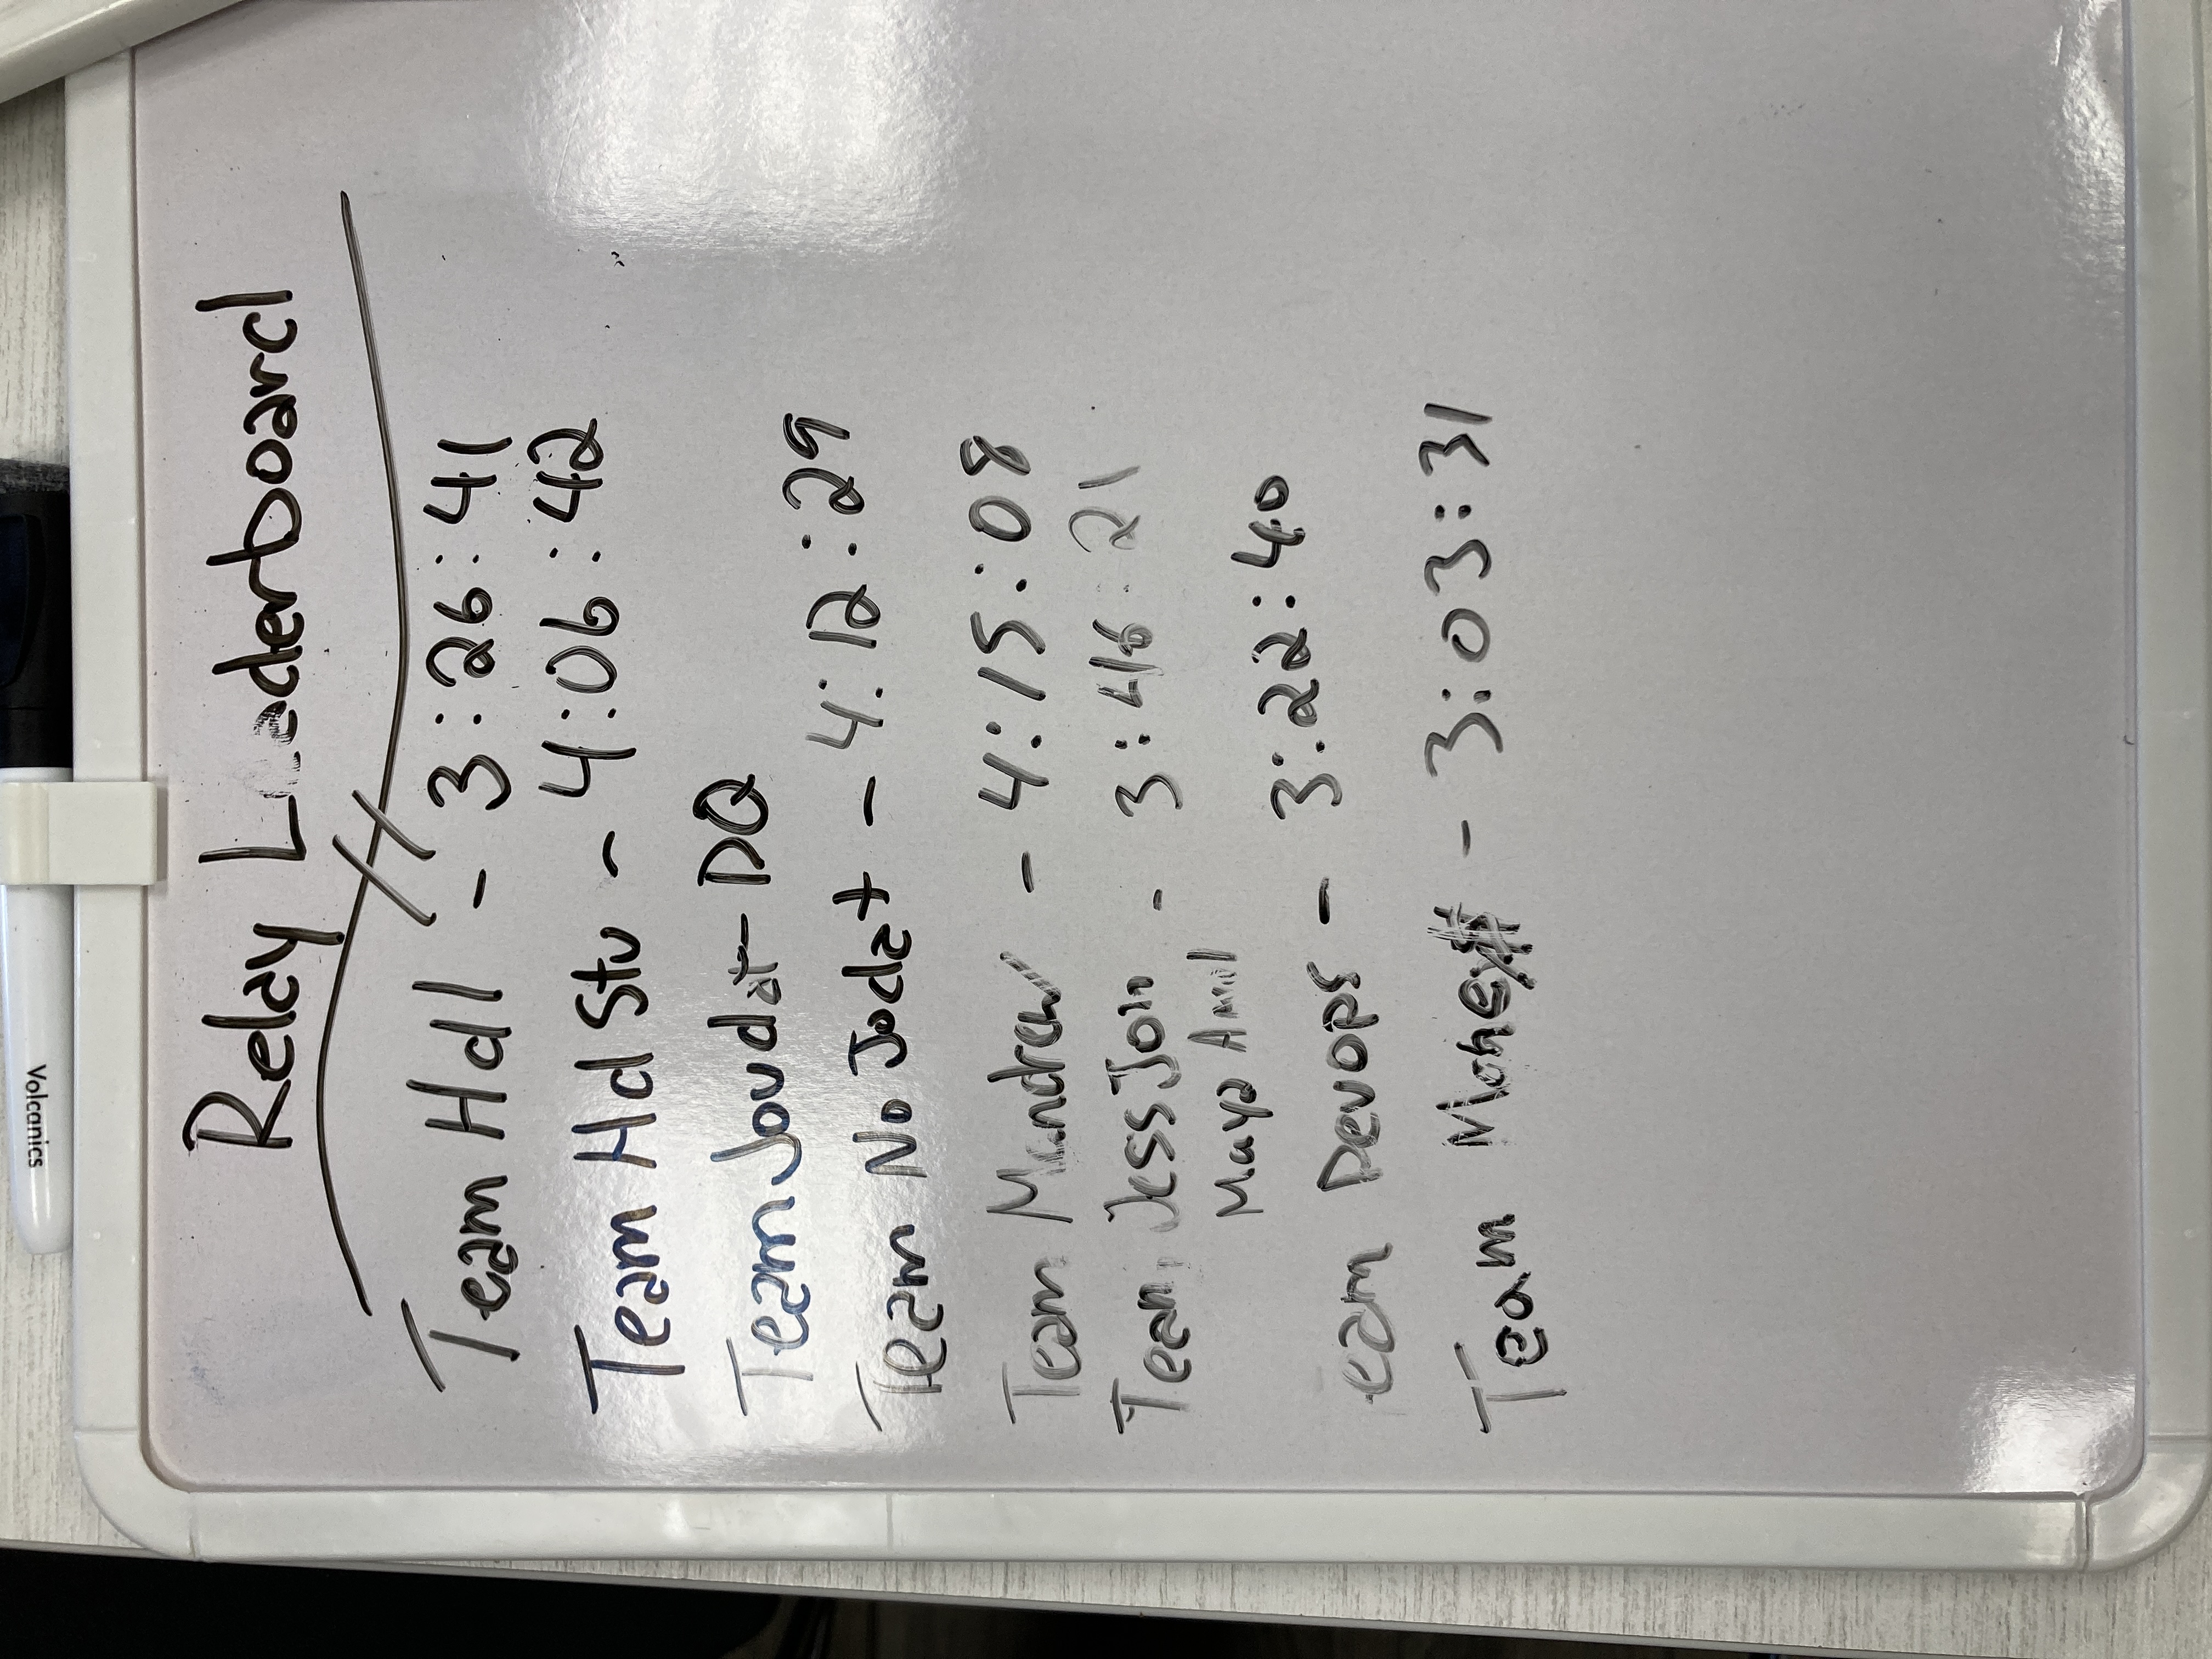 Volcanics
Relay Leaderboard
Team Hdl - 3:26:41
Team Hd Stu - 4:06:42
Team Joudat - DQ
Team No Jodat - 4:12:29
Team Mandrew - 4:15:08
Team Jess Jon - 3:46:21
Maya
eam Devops - 3:22:40
Team Money$ - 3:03:31